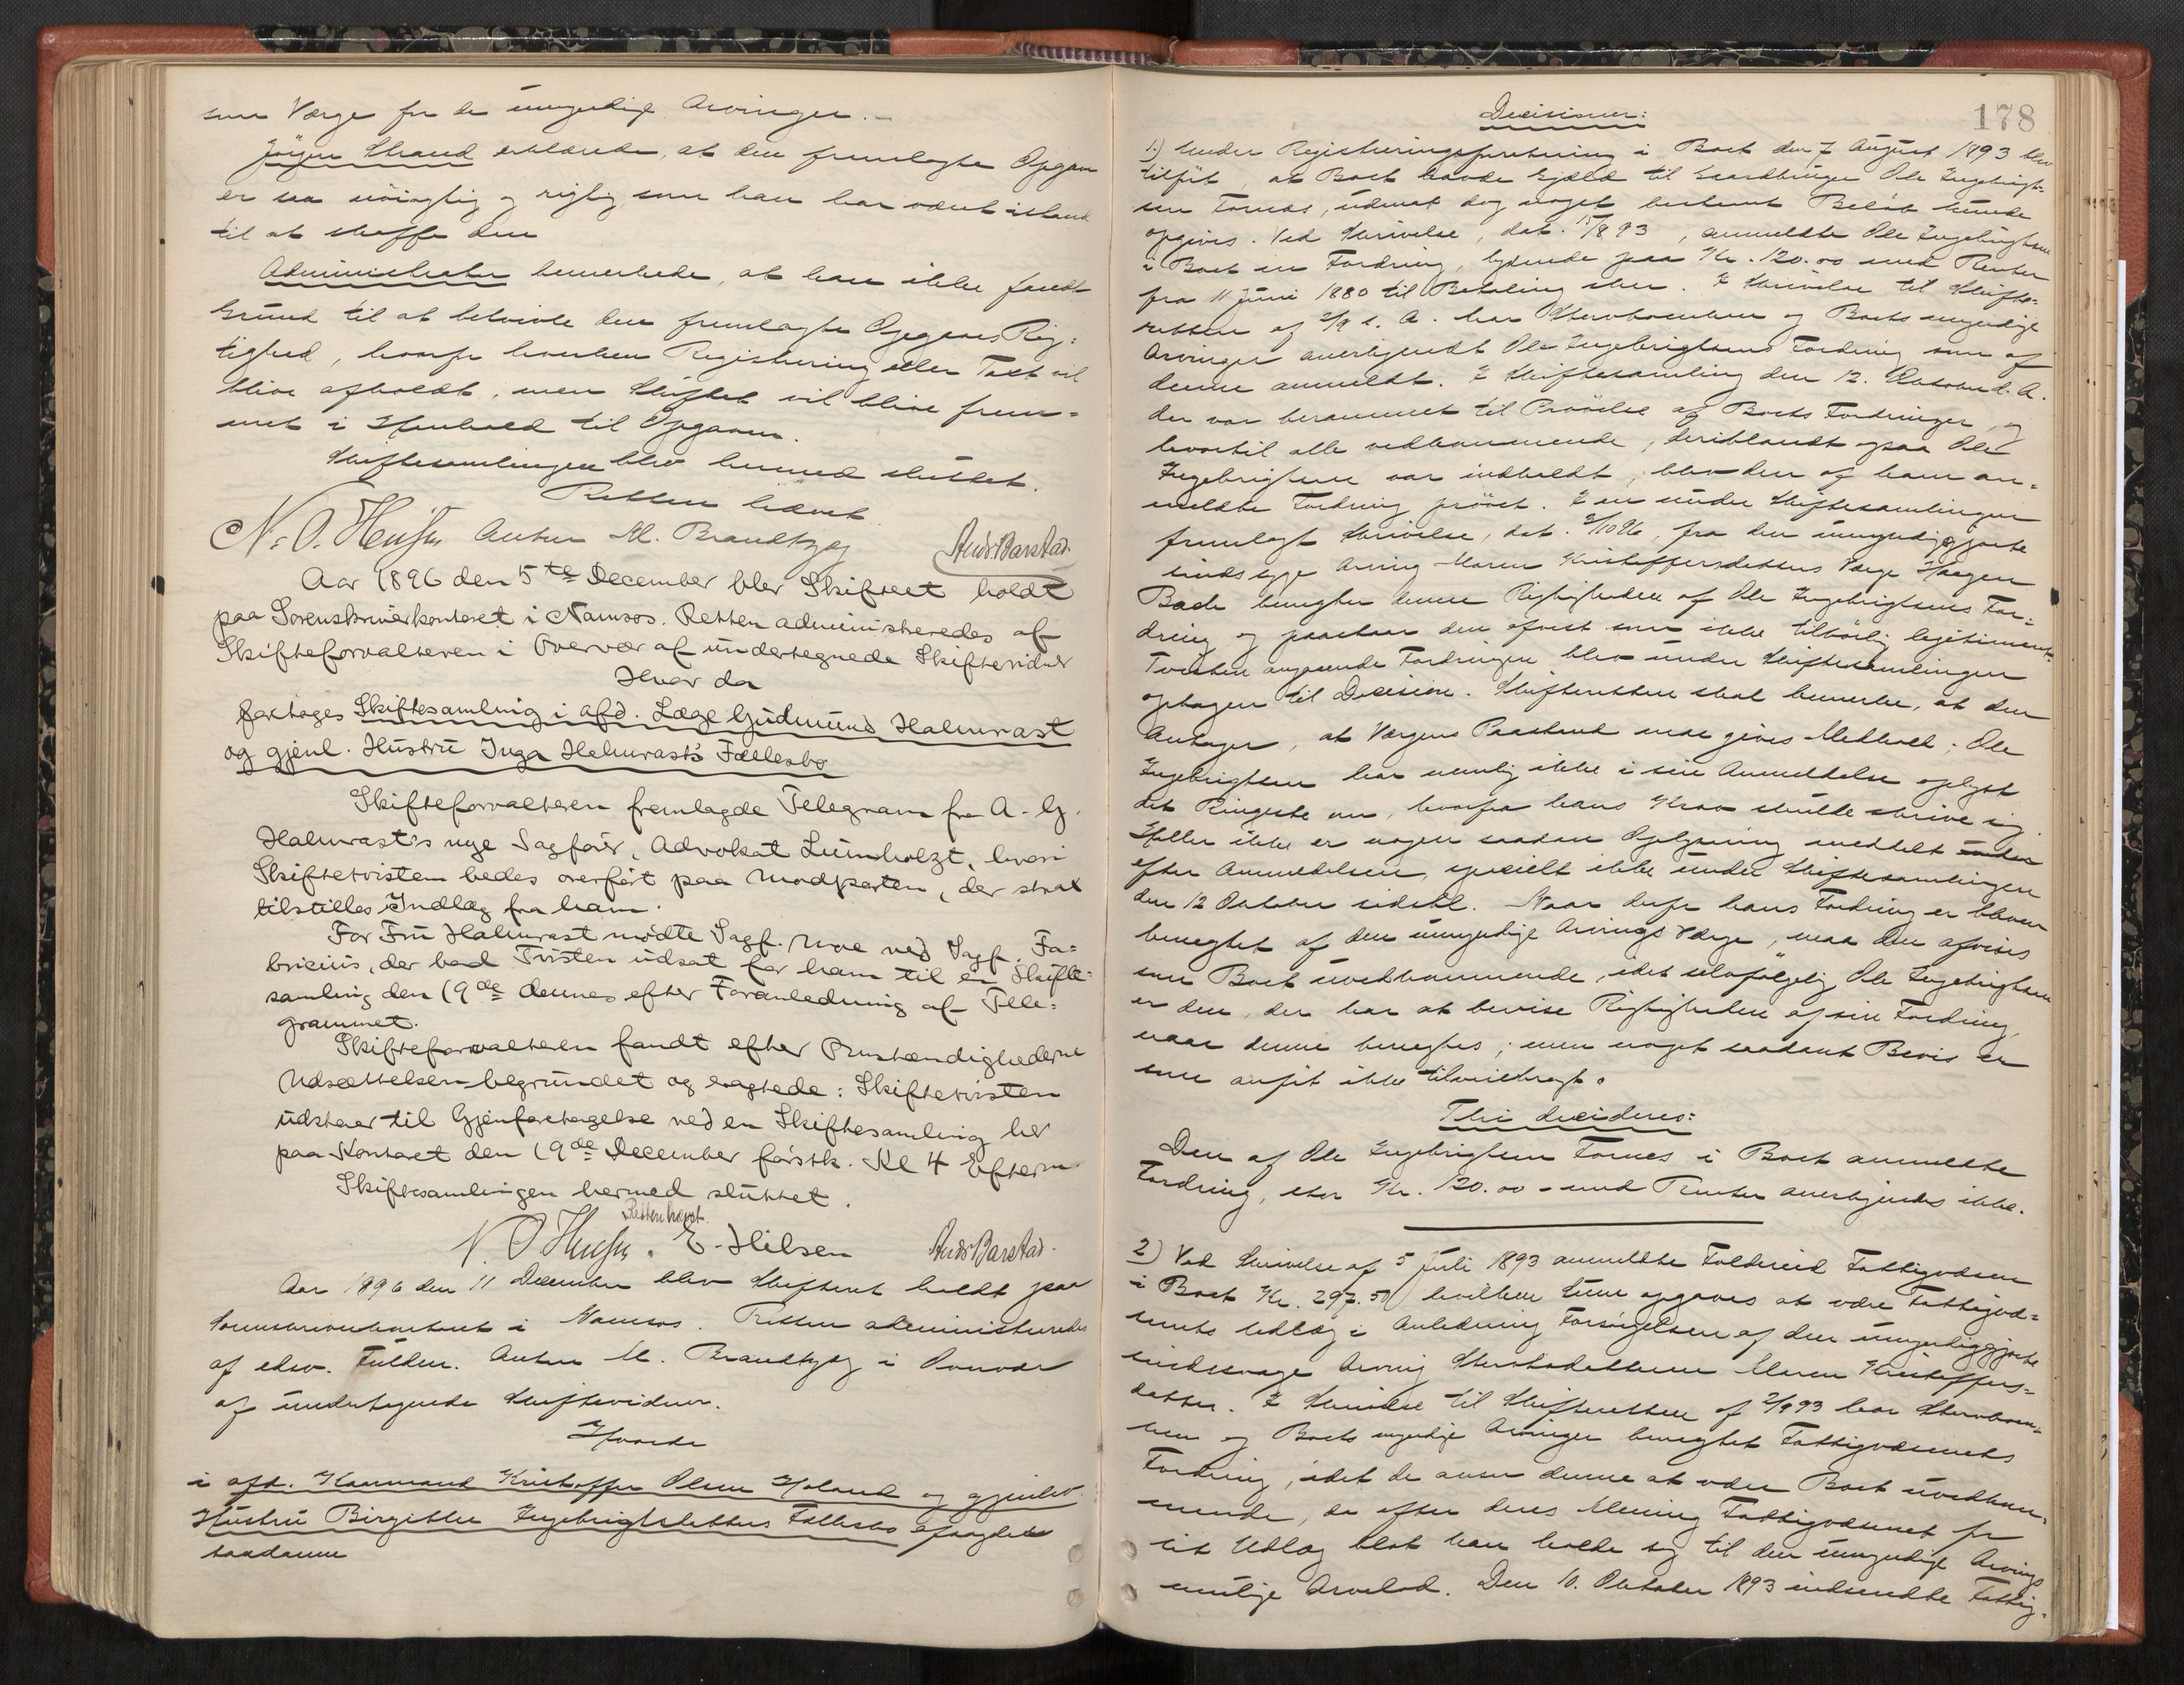 som Værge for de umyndige Arvinger.
Jörgen Strand erklærede, at den fremlagte Opgave
er saa nöiagtig og rigtig, som han har været istand
til at skaffe den
Administrator bemerkede, at han ikke fandt
Grund til at betvivle den fremlagte Opgaves Rig-
tighed, hvorfor hverken Registrering eller Taxt vil
blive afholdt, men Skiftet vil blive frem-
met i Henhold til Opgaven.
Skiftesamlingen blev hermed sluttet.
Retten hævet
N. O. Hensen Anton M. Brandtzæg Ands Barstad.
Aar 1896 den 5te December blev Skifteret holdt
paa Sorenskriverkontoret i Namsos. Retten administreredes af
Skifteforvalteren i Overvær af undertegnede Skiftevidner
Hvor da
foretoges Skiftesamling i afd. Læge Gudmund Halmrast
og gjenl. Hustru Inga Halmrast's Fællesbo
Skifteforvalteren fremlagde Telegram fra A. G.
Halmrast's nye Sagförer, Advokat Lumholzt, hvori
Skiftetvisten bedes overfört paa Modparten, der skal
tilstilles Indlæg fra ham.
For Fru Halmrast mödte Sagf. Moe ved Sagf. Fa=
bricius, der bad Tvisten udsat for ham til en Skifte=
samling den 19de dennes efter Foranledning af Tele=
grammet.
Skifteforvalteren fandt efter Omstændighederne
Udsættelsen begrundet og eragtede: Skiftetvisten
udstaaer til Gjenforetagelse ved en Skiftesamling her
paa Kontoret den 19de December förstk. Kl 4 Efterm.
Skiftesamlingen hermed sluttet.
Retten hævet.
N. O Hensen. E. Hilsen Ands Barstad.
Aar 1896 den 11 December blev Skifteret holdt paa
Sorenskriverkontoret i Namsos. Retten administreredes
af edsv. Fuldm. Anton M. Brandtzæg i Overvær
af undertegnede Skiftevidner.
Hvorda
i afd. Kaarmand Kristoffer Olsen Höland og gjenlev.
Hustru Birgitte Ingebrigtsdatters Fællesbo afsagdes
saadanne
178
Decisioner:
1) Under Registreringsforretning i Boet den 7 August 1893 blev
tilfört, at Boet havde Gjæld til Gaardbruger Ole Ingebrigt=
sen Fornes, uden at dog noget bestemt Belöb kunde
opgives. Ved Skrivelse, dat. 15/8 93, anmeldte Ole Ingebrigtsen
i Boet en Fordring, lydende paa Kr. 120.00 med Renter
fra 11 Juni 1880 til Betaling sker. I Skrivelse til Skifte=
retten af 2/9 s. A. har Stervboenken og Boets myndige
Arvinger anerkjendt Ole Ingebrigtsens Fordring som af
denne anmeldt. I Skiftesamling den 12. Oktober d. A.
der var berammet til Prövelse af Boets Fordringer, og
hvortil alle vedkommende, deriblandt ogsaa Ole
Ingebrigtsen var indkaldt, blev den af ham an=
meldte Fordring prövet. I en under Skiftesamlingen
fremlagt Skrivelse, dat. 9/10 96, fra den umyndiggjorte
sindssyge Arving Maren Kristoffersdatters Værge Haagen
Bach benegter denne Rigtigheden af Ole Ingebrigtsens For=
dring og paastaar den afvist som ikke tilbörlig legitimeret.
Tvisten angaaende Fordringen blev under Skiftesamlingen
optagen til Decision. Skifteretten skal bemerke, at den
antager, at Værgens Paastand maa gives Medhold. Ole
Ingebrigtsen har nemlig ikke i sin Anmeldelse oplyst
det Ringeste om, hvorfra hans Krav skulde skrive sig.
Heller ikke er nogen saadan Oplysning meddelt
efter Anmeldelsen, specielt ikke under Skiftesamlingen
den 12 Oktober sidstl. Naar derfor hans Fordring er bleven
benegtet af den umyndige Arvings Værge, maa den afvises
som Boet uvedkommende, idet selvfölgelig Ole Ingebrigtsen
er den, der har at bevise Rigtigheden af sin Fordring,
naar denne benegtes; men noget saadant Bevis er
som anfört ikke tilveiebragt.
Thi decideres:
Den af Ole Ingebrigtsen Fornes i Boet anmeldte
Fordring, stor Kr. 120.00 - med Renter anerkjendes ikke.
2) Ved Skrivelse af 5 Juli 1893 anmeldte Foldereid Fattigvæsen
i Boet Kr. 297.50 hvilken Sum opgaves at være Fattigvæ=
senets Udlæg i Anledning Forsörgelsen af den umyndiggjorte
sindssvage Arving Stervbodatteren Maren Kristoffers=
datter. I Skrivelse til Skifteretten af 2/9 93 har Stervboen=
ken og Boets myndige Arvinger benegtet Fattigvæsenets
Fordring, idet de anser denne at være Boet uvedkom=
mende, da efter deres Mening Fattigvæsenet for
sit Udlæg blot kan holde sig til den umyndige Arvings
mulige Arvelod. Den 10. Oktober 1893 indsendte Fattig-